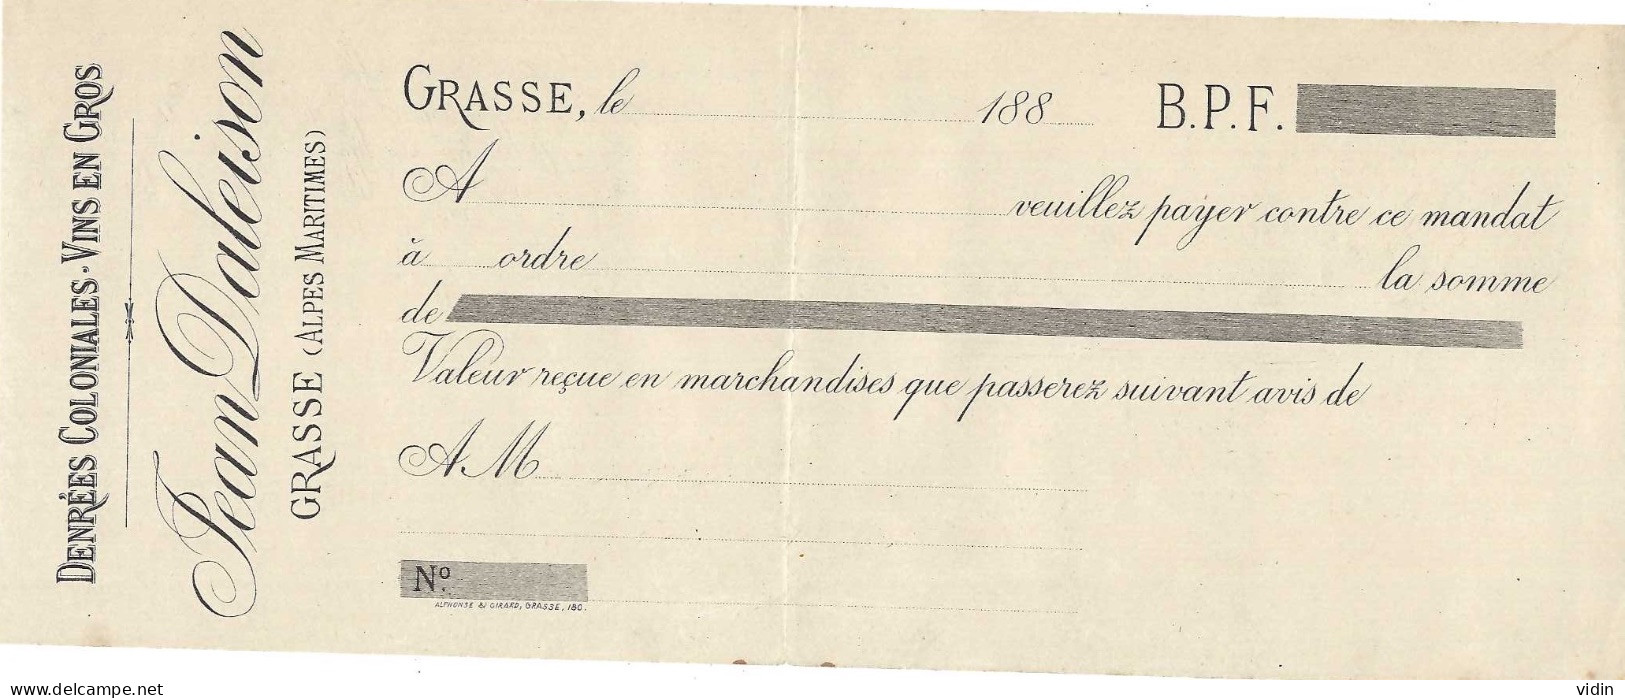 DENRÉES COLONIALES · VINS EN GROS
Jean Daleison
GRASSE (ALPES MARITIMES)
GRASSE, le 188 B.P.F.
A veuillez payer contre ce mandat
à ordre la somme
de
Valeur reçue en marchandises que passerez suivant avis de
A M
No.
ALPHONSE & GIRARD, GRASSE, 180.
www.delcampe.net
vidin